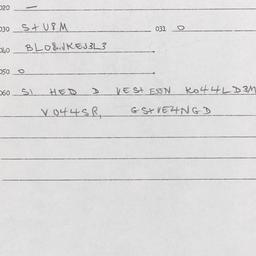 020 —
030 S+U8M 031 0
040 BLO8.JKEJ3L3
050 0
060 SI. HED D VEST EION KO44LD3M
VO44SR, GS+VE4NGD